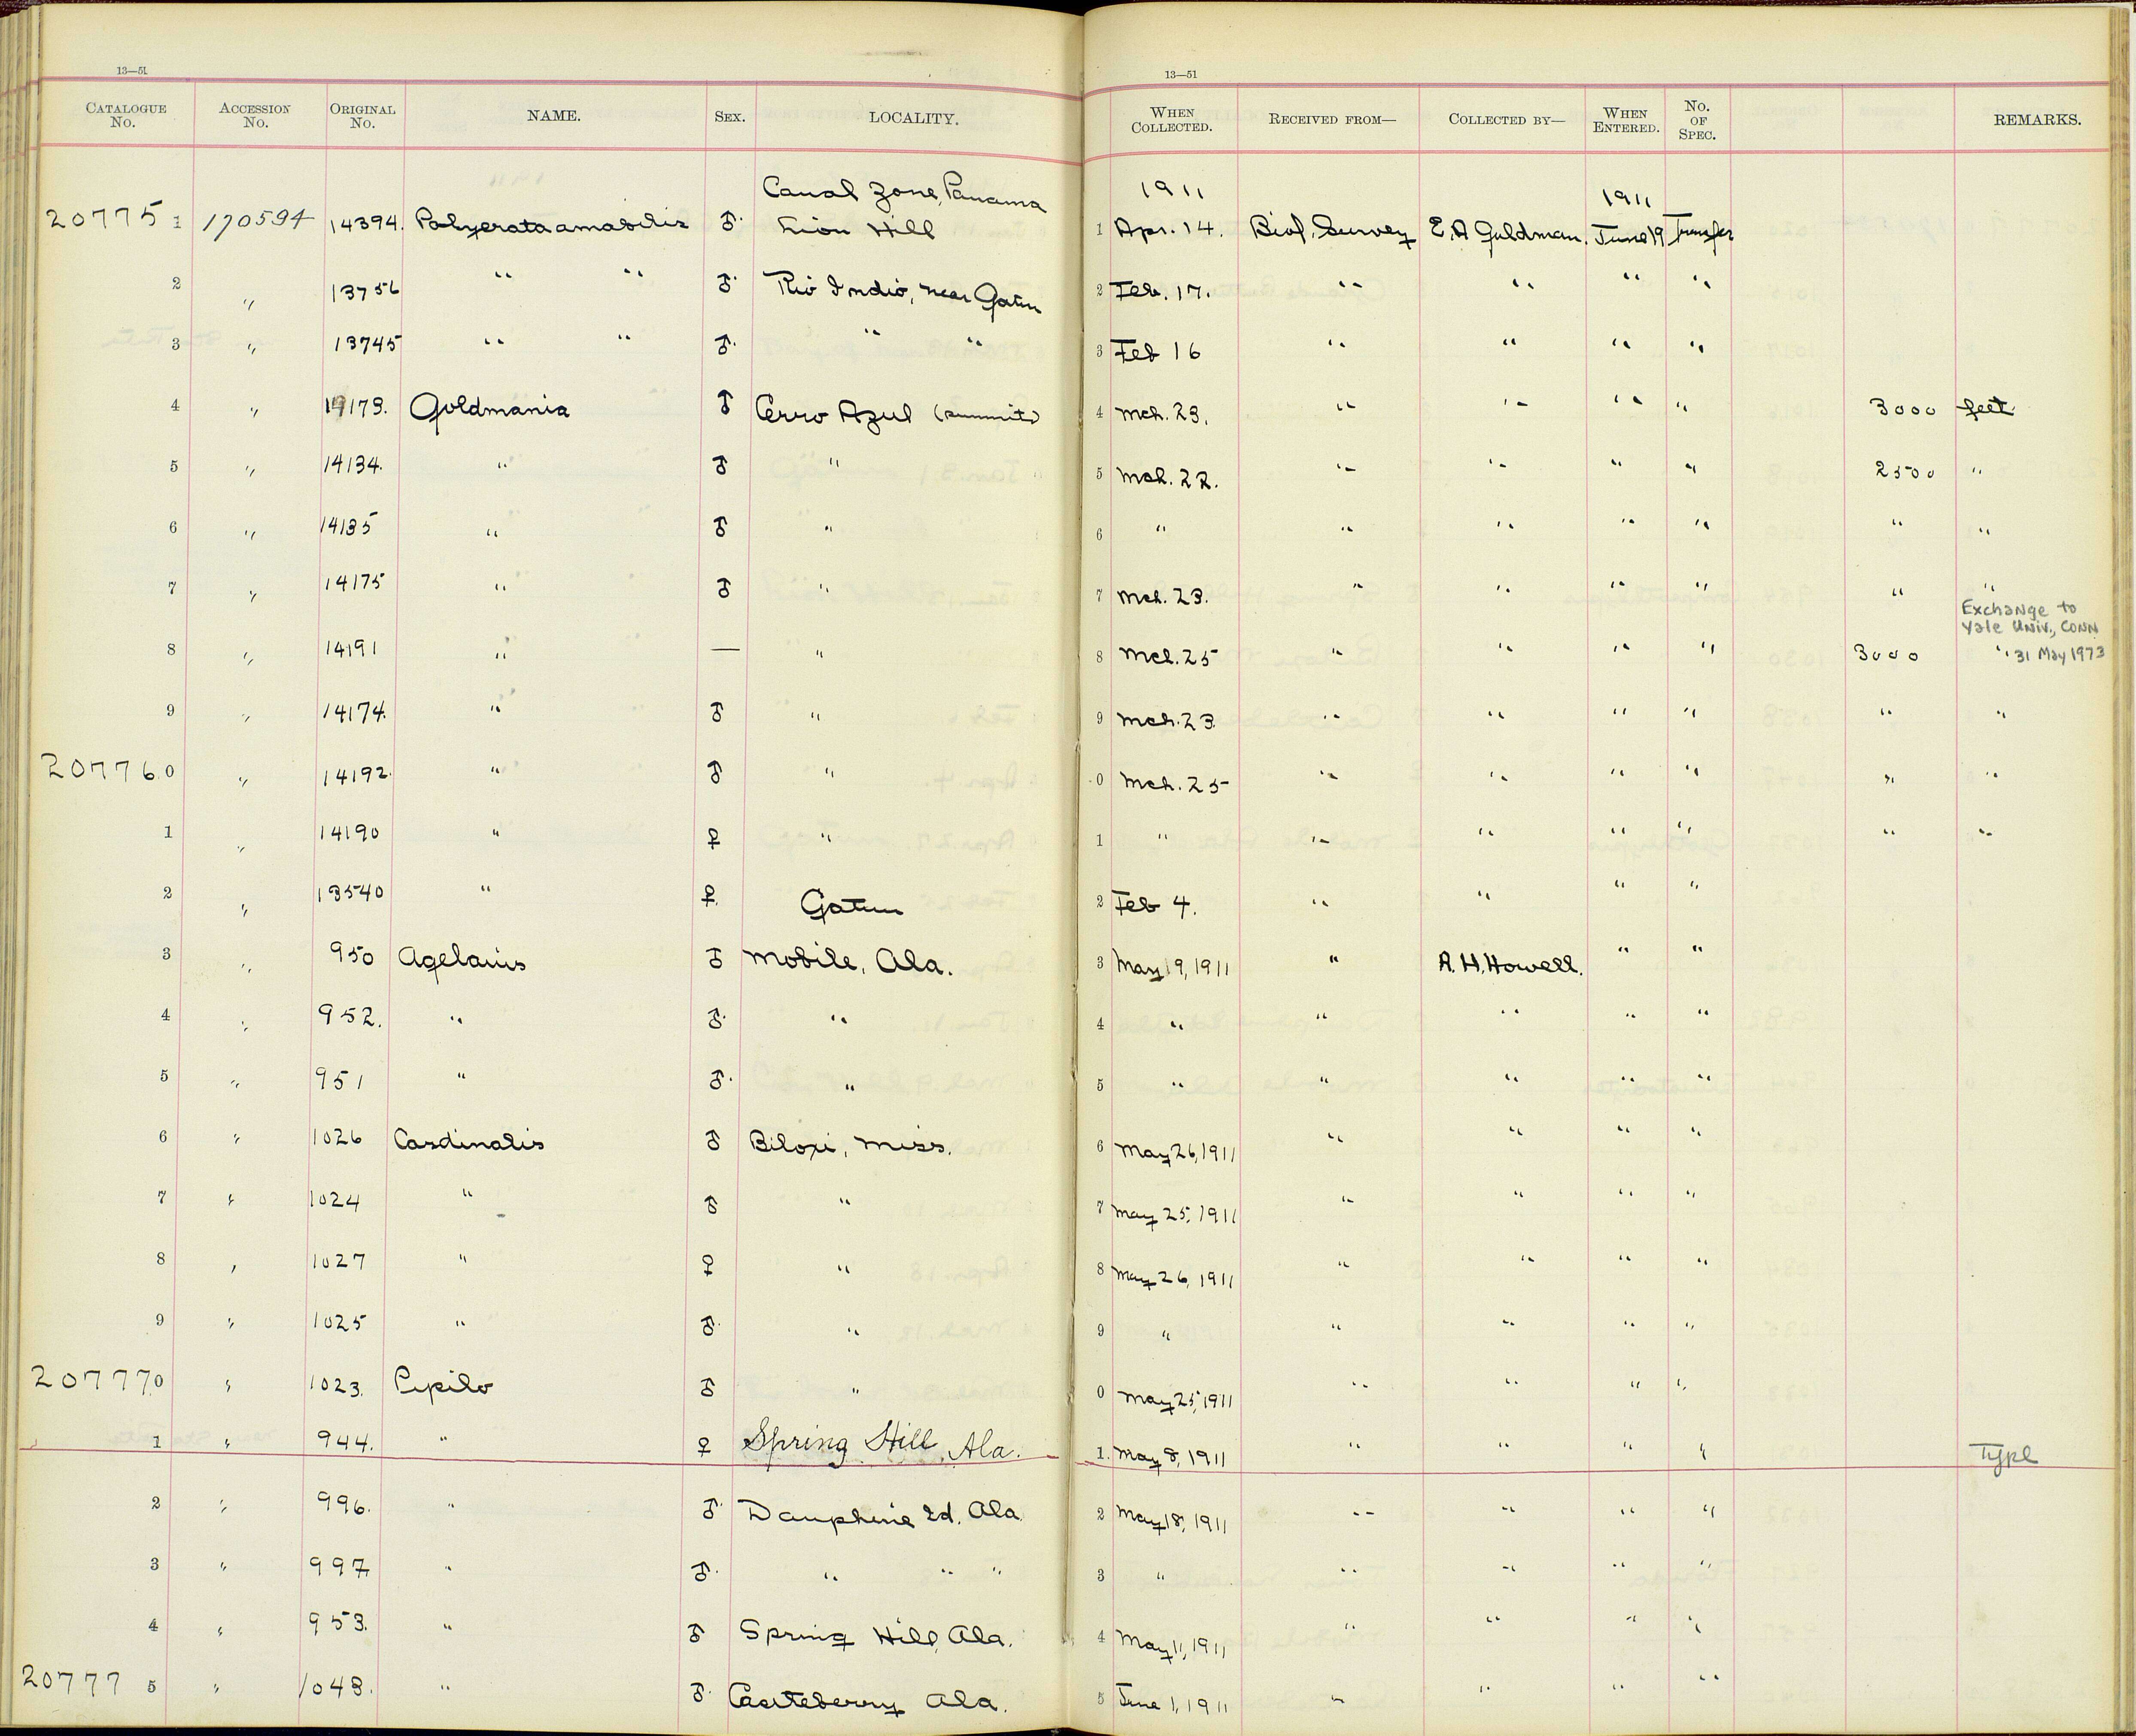 13—51
13—51
CATALOGUE No. ACCESSION No. ORIGINAL No. NAME. SEX. LOCALITY. WHEN COLLECTED. RECEIVED FROM— COLLECTED BY— WHEN ENTERED. No. OF SPEC. REMARKS.
Canal Zone, Panama 1911 1911
20775 1 170594 14394. Polyerata amabilis ♂. Lion Hill 1 Apr. 14. Biol. Survey E. A. Goldman. June 19 Transfer
2 〃 13756 〃 〃 ♂. Rio Indio, near Gatun 2 Feb. 17. 〃 〃 〃 〃
3 〃 13745 〃 〃 ♂. 〃 〃 3 Feb 16 〃 〃 〃 〃
4 〃 14179. Goldmania ♂ Cerro Azul (summit) 4 Mch. 23. 〃 〃 〃 〃 3000 feet.
5 〃 14134. 〃 ♂ 〃 5 Mch. 22. 〃 〃 〃 〃 2500 〃
6 〃 14135 〃 ♂ 〃 6 〃 〃 〃 〃 〃 〃 〃
7 〃 14175 〃 ♂ 〃 7 Mch. 23. 〃 〃 〃 〃 〃 〃
Exchange to
Yale Univ., Conn
8 〃 14191 〃 — 〃 8 Mch. 25 〃 〃 〃 〃 3000 〃 31 May 1973
9 〃 14174. 〃 ♂ 〃 9 Mch. 23 〃 〃 〃 〃 〃 〃
20776 0 〃 14192. 〃 ♂ 〃 0 Mch. 25 〃 〃 〃 〃 〃 〃
1 〃 14190 〃 ♀ 〃 1 〃 〃 〃 〃 〃 〃 〃
2 〃 13540 〃 ♀. Gatun 2 Feb 4. 〃 〃 〃 〃
3 〃 950 Agelaius ♂ Mobile, Ala. 3 May 19, 1911 〃 A. H. Howell. 〃 〃
4 〃 952. 〃 ♂. 〃 4 〃 〃 〃 〃 〃
5 〃 951 〃 ♂. 〃 5 〃 〃 〃 〃 〃
6 〃 1026 Cardinalis ♂ Biloxi, Miss. 6 May 26, 1911 〃 〃 〃 〃
7 〃 1024 〃 ♂ 〃 7 May 25, 1911 〃 〃 〃 〃
8 〃 1027 〃 ♀ 〃 8 May 26, 1911 〃 〃 〃 〃
9 〃 1025 〃 ♂. 〃 9 〃 〃 〃 〃 〃
20777 0 〃 1023. Pipilo ♂ 〃 0 May 25, 1911 〃 〃 〃 〃
1 〃 944. 〃 ♀ Spring Hill, Ala. 1. May 8, 1911 〃 〃 〃 〃 Type
2 〃 996. 〃 ♂. Dauphine Id. Ala. 2 May 18, 1911 〃 〃 〃 〃
3 〃 997 〃 ♂. 〃 〃 〃 3 〃 〃 〃 〃 〃
4 〃 953. 〃 ♂ Spring Hill, Ala. 4 May 11, 1911 〃 〃 〃 〃
20777 5 〃 1048. 〃 ♂. Castleberry Ala. 5 June 1, 1911 〃 〃 〃 〃